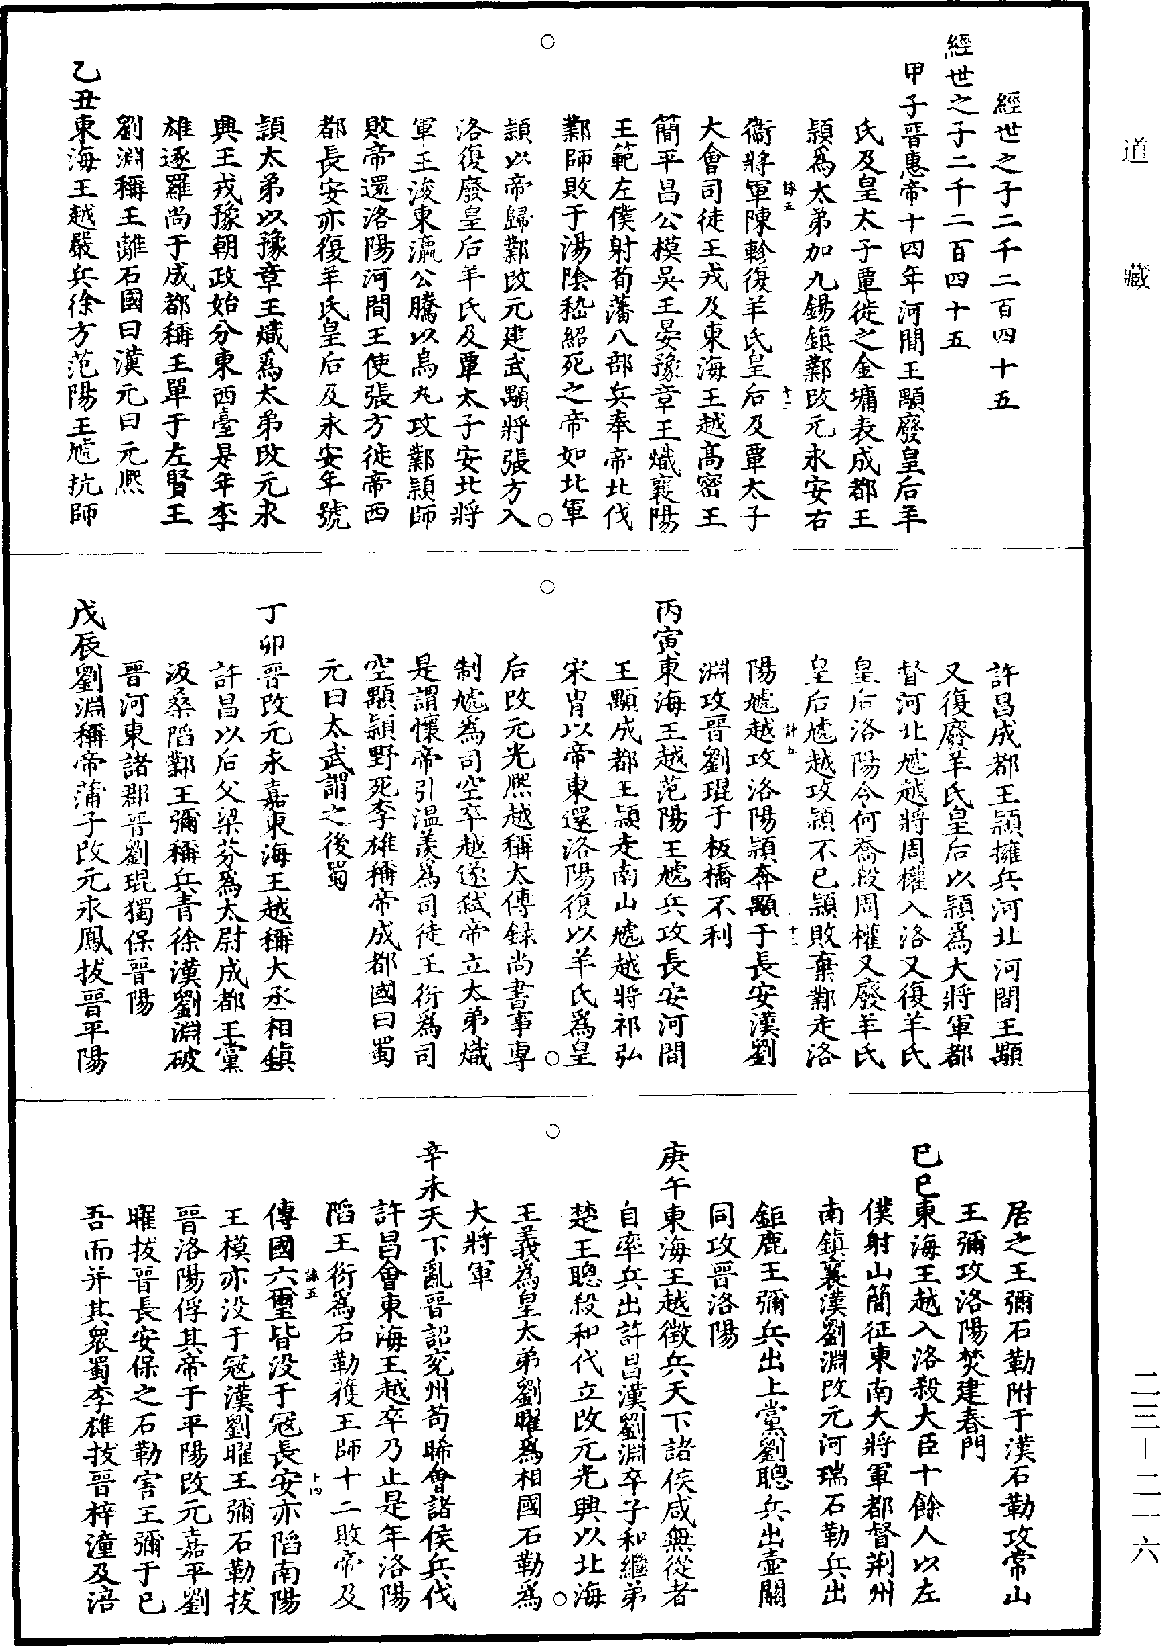 道藏
經世之子二千二百四十五
經世之子二千二百四十五
甲子晉惠帝十四年河間王顒廢皇后羊
氏及皇太子覃徙之金墉表成都王
穎爲太弟加九錫鎮鄴改元永安右
衞將軍陳軫復羊氏皇后及覃太子
大會司徒王戎及東海王越高密王
簡平昌公模吳王晏豫章王熾襄陽
王範左僕射荀藩八部兵奉帝北伐
鄴師敗于湯陰嵇紹死之帝如北軍
穎以帝歸鄴改元建武顒將張方入
洛復廢皇后羊氏及覃太子安北將
軍王浚東瀛公騰以烏丸攻鄴穎師
敗帝還洛陽河間王使張方徙帝西
都長安亦復羊氏皇后及永安年號
穎太弟以豫章王熾爲太弟改元永
興王戎豫朝政始分東西臺是年李
雄逐羅尚于成都稱王單于左賢王
劉淵稱王離石國曰漢元曰元熙
乙丑東海王越嚴兵徐方范陽王虓抗師
許昌成都王穎擁兵河北河間王顒
又復廢羊氏皇后以穎爲大將軍都
督河北虓越將周權入洛又復羊氏
皇后洛陽令何喬殺周權又廢羊氏
皇后虓越攻穎不已穎敗棄鄴走洛
陽虓越攻洛陽穎奔顒于長安漢劉
淵攻晉劉琨于板橋不利
丙寅東海王越范陽王虓兵攻長安河間
王顒成都王穎走南山虓越將祁弘
宋胄以帝東還洛陽復以羊氏爲皇
后改元光熙越稱太傅録尚書事專
制虓爲司空卒越遂弑帝立太弟熾
是謂懷帝引溫羨爲司徒王衍爲司
空顒穎野死李雄稱帝成都國曰蜀
元曰太武謂之後蜀
丁卯晉改元永嘉東海王越稱大丞相鎮
許昌以后父梁芬爲太尉成都王黨
汲桑陷鄴王彌稱兵青徐漢劉淵破
晉河東諸郡晉劉琨獨保晉陽
戊辰劉淵稱帝蒲子改元永鳳拔晉平陽
居之王彌石勒附于漢石勒攻常山
王彌攻洛陽焚建春門
巳巳東海王越入洛殺大臣十餘人以左
僕射山簡征東南大將軍都督荊州
南鎮襄漢劉淵改元河瑞石勒兵出
鉅鹿王彌兵出上黨劉聰兵出壺關
同攻晉洛陽
庚午東海王越徵兵天下諸侯咸無從者
自率兵出許昌漢劉淵卒子和繼弟
楚王聰殺和代立改元光興以北海
王義爲皇太弟劉曜爲相國石勒爲
大將軍
辛未天下亂晉詔兗州苟晞會諸侯兵伐
許昌會東海王越卒乃止是年洛陽
陷王衍爲石勒獲王師十二敗帝及
傳國六璽皆没于冦長安亦陷南陽
王模亦没于冦漢劉曜王彌石勒拔
晉洛陽俘其帝于平陽改元嘉平劉
曜拔晉長安保之石勒害王彌于已
吾而并其衆蜀李雄拔晉梓潼及涪
二三—二一六